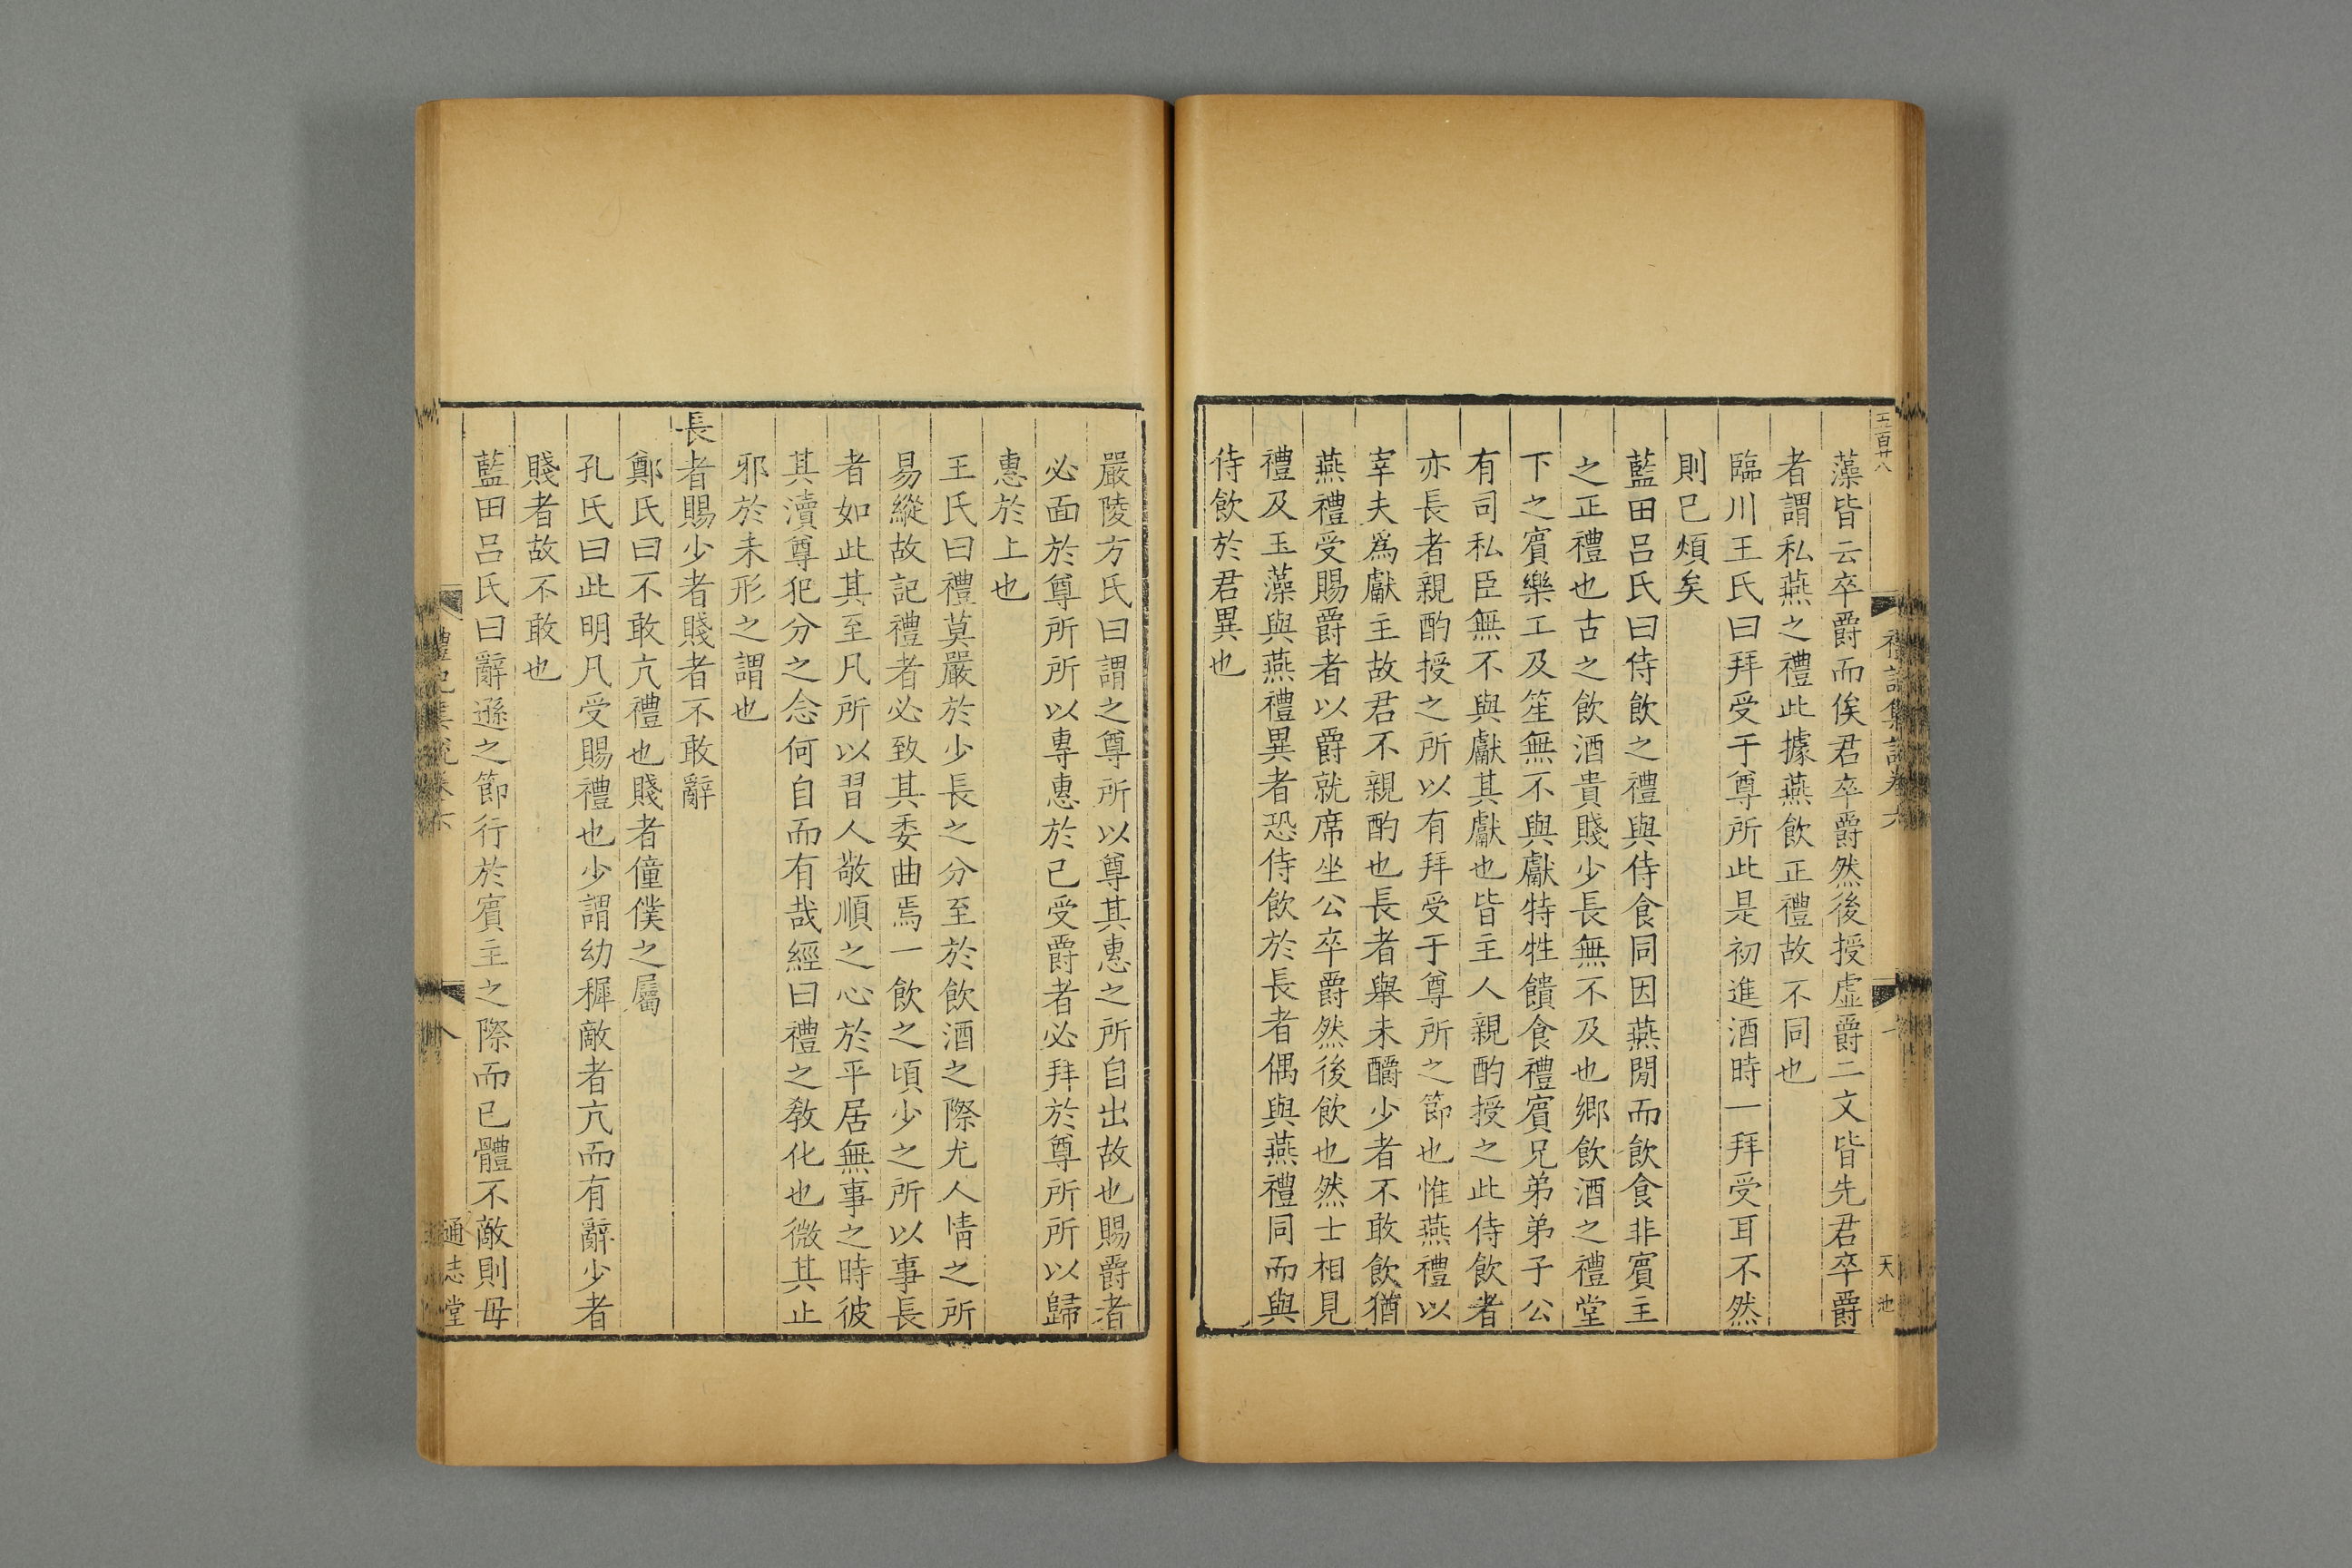 五百廿八
禮記集說卷六
天池
藻皆云卒爵而俟君卒爵然後授虛爵二文皆先君卒爵
者謂私燕之禮此據燕飲正禮故不同也
臨川王氏曰拜受于尊所此是初進酒時一拜受耳不然
則已煩矣
藍田呂氏曰侍飲之禮與侍食同因燕閒而飲食非賓主
之正禮也古之飲酒貴賤少長無不及也鄉飲酒之禮堂
下之賓樂工及笙無不與獻特牲饋食禮賓兄弟弟子公
有司私臣無不與獻其獻也皆主人親酌授之此侍飲者
亦長者親酌授之所以有拜受于尊所之節也惟燕禮以
宰夫爲獻主故君不親酌也長者舉未釂少者不敢飲猶
燕禮受賜爵者以爵就席坐公卒爵然後飲也然士相見
禮及玉藻與燕禮異者恐侍飲於長者偶與燕禮同而與
侍飲於君異也
嚴陵方氏曰謂之尊所以尊其惠之所自出故也賜爵者
必面於尊所所以專惠於己受爵者必拜於尊所所以歸
惠於上也
王氏曰禮莫嚴於少長之分至於飲酒之際尤人情之所
易縱故記禮者必致其委曲焉一飲之頃少之所以事長
者如此其至凡所以習人敬順之心於平居無事之時彼
其瀆尊犯分之念何自而有哉經曰禮之教化也微其止
邪於未形之謂也
長者賜少者賤者不敢辭
鄭氏曰不敢亢禮也賤者僮僕之屬
孔氏曰此明凡受賜禮也少謂幼穉敵者亢而有辭少者
賤者故不敢也
藍田呂氏曰辭遜之節行於賓主之際而已體不敵則毋
禮記集說卷六
八
通志堂